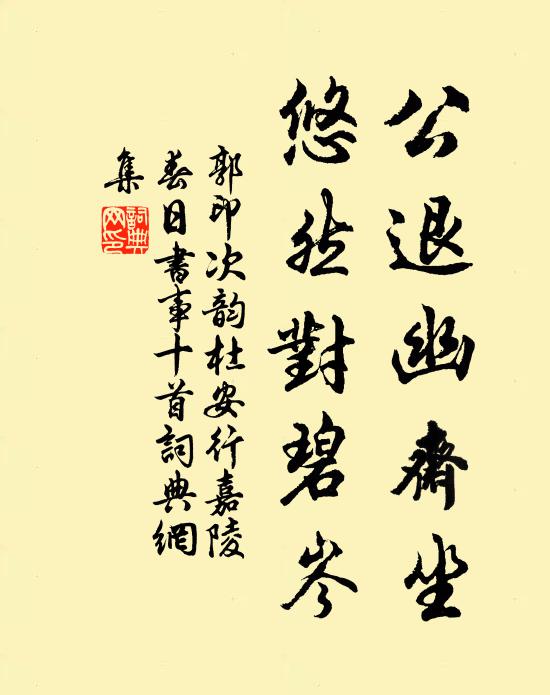 公退幽齋坐
悠然對碧岑
郭印次韵杜安行嘉陵
春日書事十首詞典網
集
詞典網印